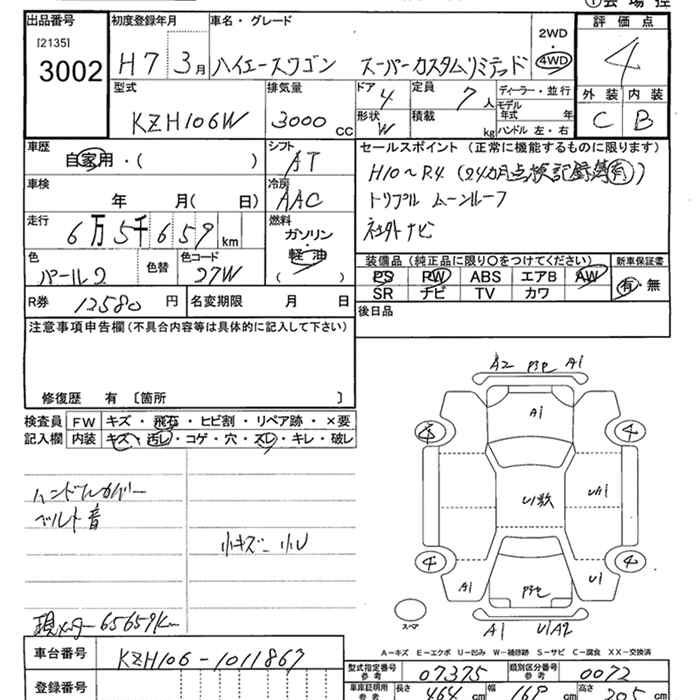 ①会場控
出品番号 [2135] 3002
初度登録年月 H7 3月
車名・グレード ハイエースワゴン スーパーカスタムリミテッド
2WD・4WD
評価点 4
外装 C 内装 B
型式 KZH106W
排気量 3000 CC
ドア 4
形状 W
定員 7人
積載 kg
ディーラー・並行
モデル年式 年
ハンドル 左・右
車歴 自家用・( )
シフト AT
車検 年 月( 日)
冷房 AAC
走行 6万5千659km
燃料 ガソリン・軽油 ( )
色 パール2 色替
色コード 27W
R券 12580円
名変期限 月 日
セールスポイント(正常に機能するものに限ります)
H10~R4(24カ月点検記録簿有)
トリプルムーンルーフ
社外ナビ
装備品(純正品に限り○をつけてください)
PS PW ABS エアB AW
SR ナビ TV カワ
新車保証書 有・無
後日品
注意事項申告欄(不具合内容等は具体的に記入して下さい)
修復歴 有 〔箇所 〕
検査員記入欄
FW キズ・飛石・ヒビ割・リペア跡・×要
内装 キズ・汚レ・コゲ・穴・スレ・キレ・破レ
ハンドルカバー
ベルト音
小キズ 小U
現メーター65659km
A2 P3P A1
A1
4 4
U1数
4 4
A1 U1
P3P
スペア
A1 U1A2
A-キズ E-エクボ U-凹み W-補修跡 S-サビ C-腐食 XX-交換済
車台番号 KZH106-1011867
登録番号
型式指定番号 参考 07375
類別区分番号 参考 0072
車庫証明用 参考 長さ 464cm 幅 169cm 高さ 205cm